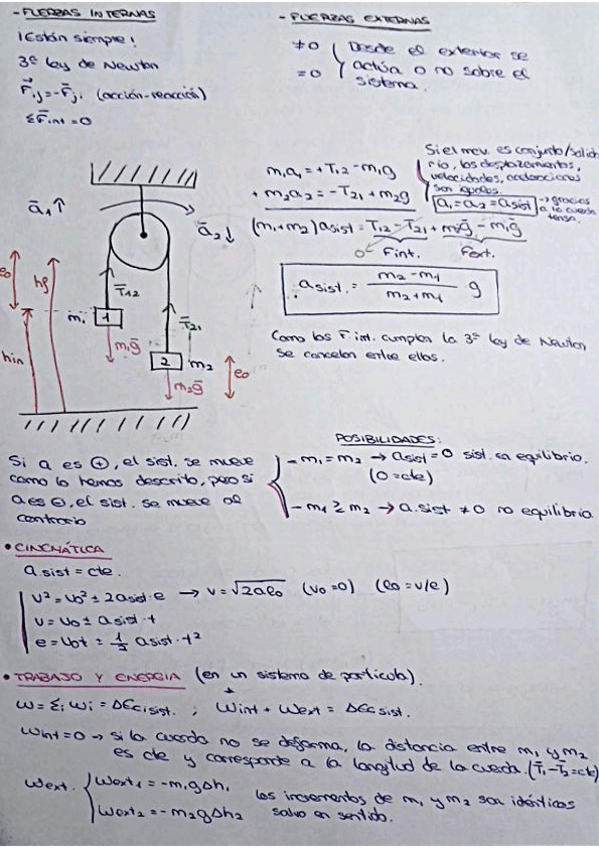 - FUERZAS INTERNAS
¡Están siempre!
3ª Ley de Newton
F⃗ij = -F⃗ji (acción-reacción)
ΣF⃗int = 0
- FUERZAS EXTERNAS
≠0
=0
Desde el exterior se
actúa o no sobre el
sistema.
m₁a₁ = +T₁₂ - m₁g
+ m₂a₂ = -T₂₁ + m₂g
(m₁+m₂) asist = T₁₂ - T₂₁ + m₂g⃗ - m₁g⃗
0 Fint. Fext.
Si el mov. es conjunto/solida
rio, los desplazamientos,
velocidades, aceleraciones
son iguales.
a₁ = a₂ = asist → gracias
a la cuerda
tensa.
asist. = (m₂ - m₁)/(m₂ + m₁) g
Como las F. int. cumplen la 3ª ley de Newton,
se cancelan entre ellas.
a⃗₁↑
a⃗₂↓
eo
hf
hin
T⃗₁₂
T⃗₂₁
m₁
1
m₁g⃗
2
m₂
m₂g⃗
eo
Si a es ⊕, el sist. se mueve
como lo hemos descrito, pero si
a es ⊖, el sist. se mueve al
contrario
POSIBILIDADES:
- m₁ = m₂ → asist = 0 sist. en equilibrio.
(0 = cte)
- m₁ ≷ m₂ → a.sist ≠ 0 no equilibrio
• CINEMÁTICA
a.sist = cte.
v² = vo² ± 2asist·e → v = √2aeo (vo=0) (eo = v/e)
v = vo ± asist·t
e = vot ± ½ asist·t²
• TRABAJO Y ENERGIA (en un sistema de partícula).
W = Σi Wi = ΔEcisist. ; Wint + Wext = ΔEcsist.
Wint = 0 → si la cuerda no se deforma, la distancia entre m₁ y m₂
es cte y corresponde a la longitud de la cuerda. (T⃗₁-T⃗₂=cte)
Wext.
Wext₁ = -m₁gΔh₁
Wext₂ = -m₂gΔh₂
los incrementos de m₁ y m₂ son idénticos
salvo en sentido.